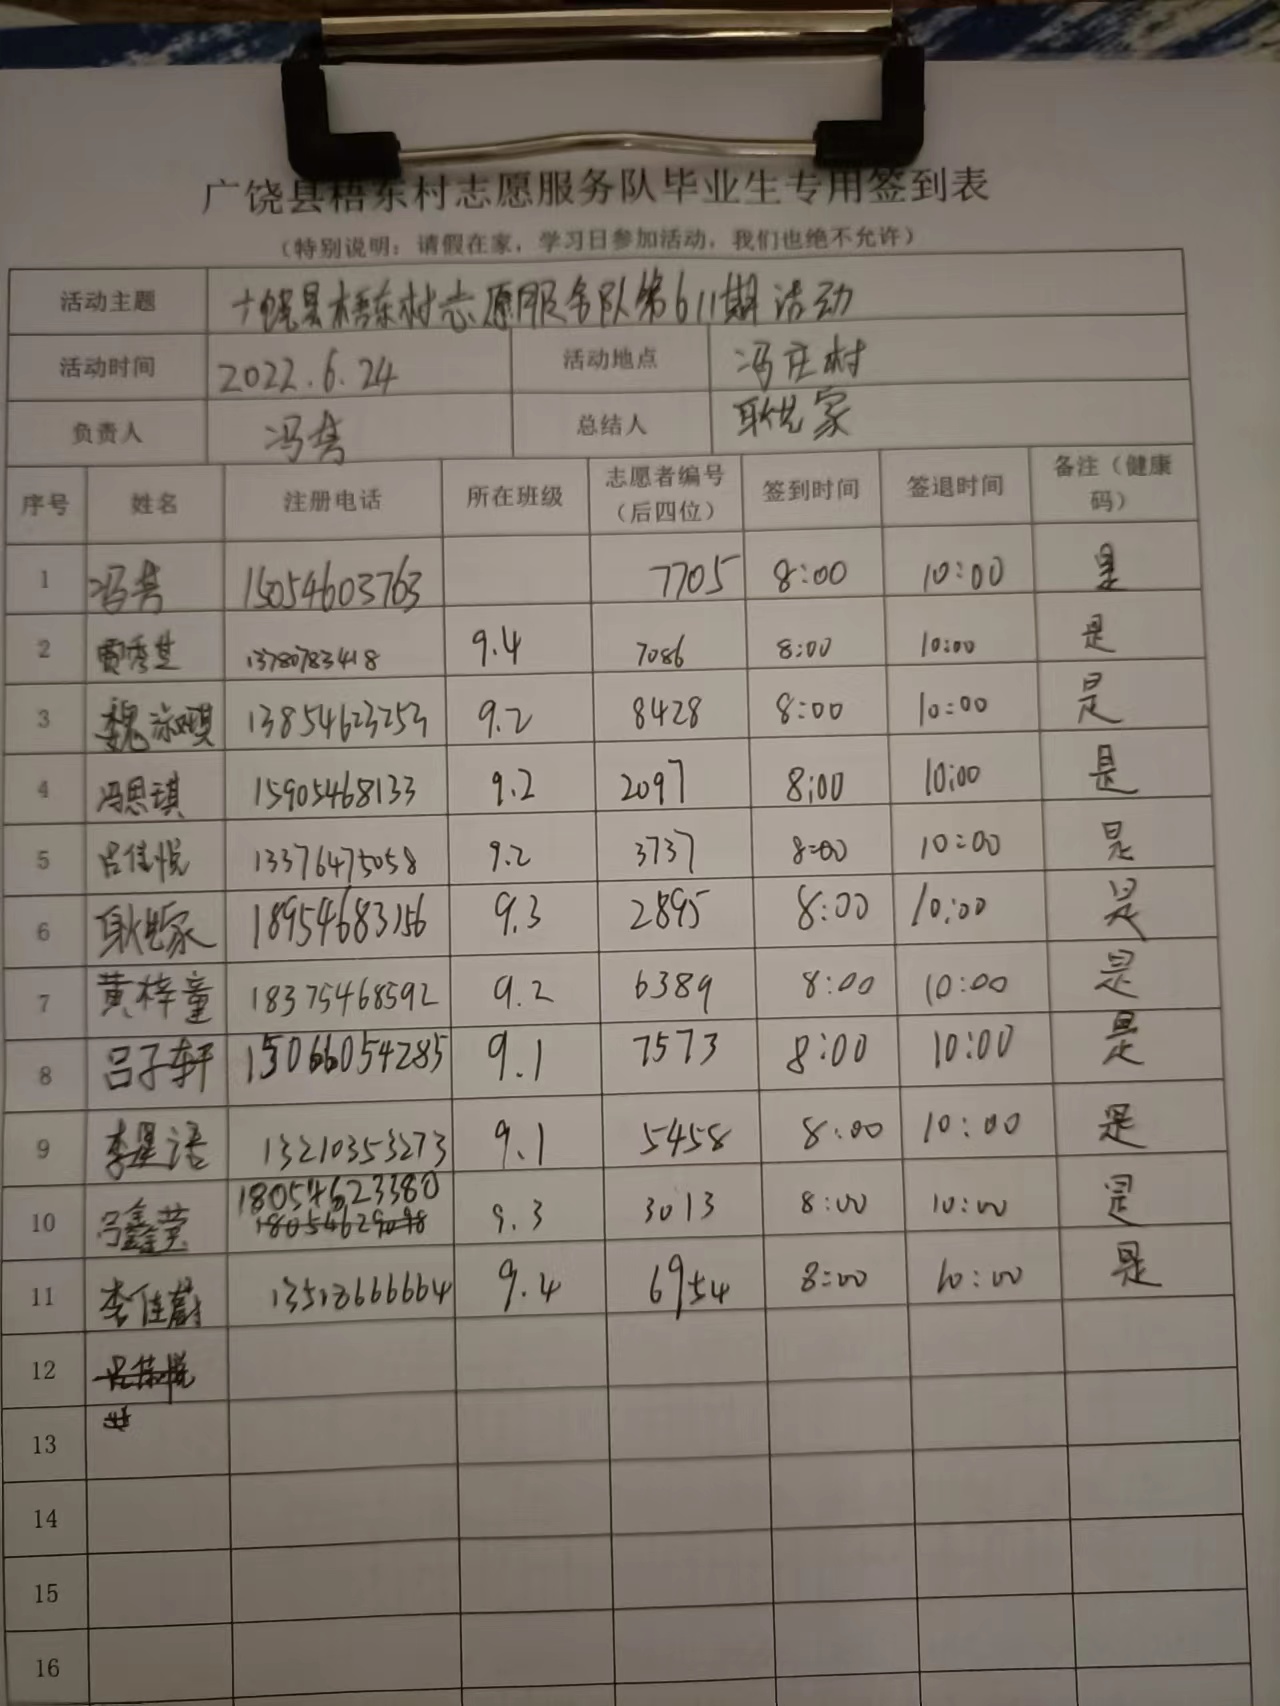 广饶县梧东村志愿服务队毕业生专用签到表
（特别说明：请假在家，学习日参加活动，我们也绝不允许）
活动主题 广饶县梧东村志愿服务队第611期活动
活动时间 2022.6.24 活动地点 冯庄村
负责人 冯 总结人 耿 家
序号 姓名 注册电话 所在班级 志愿者编号（后四位） 签到时间 签退时间 备注（健康码）
1 冯 15054603763 7705 8:00 10:00 是
2 贾秀芝 13780783418 9.4 7086 8:00 10:00 是
3 魏 琪 13854623253 9.2 8428 8:00 10:00 是
4 冯思琪 15905468133 9.2 2097 8:00 10:00 是
5 吕佳悦 13376475058 9.2 3737 8:00 10:00 是
6 耿 家 18954683156 9.3 2895 8:00 10:00 是
7 黄梓童 18375468592 9.2 6389 8:00 10:00 是
8 吕子轩 15066054285 9.1 7573 8:00 10:00 是
9 李星语 13210353273 9.1 5458 8:00 10:00 是
10 吕鑫莹 18054623380 9.3 3013 8:00 10:00 是
11 李佳蔚 9.4 6954 8:00 10:00 是
12
13
14
15
16